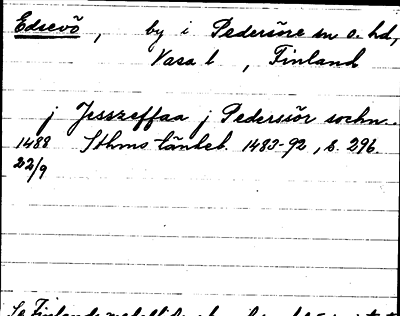 Edsevö, by i Pedersöre sn o. hd,
Vasa l, Finland
j Jesszeffaa j Pederssör sochn.
1488 Sthms tänkeb. 1483-92, s. 296.
22/9
Se Finlands medeltids